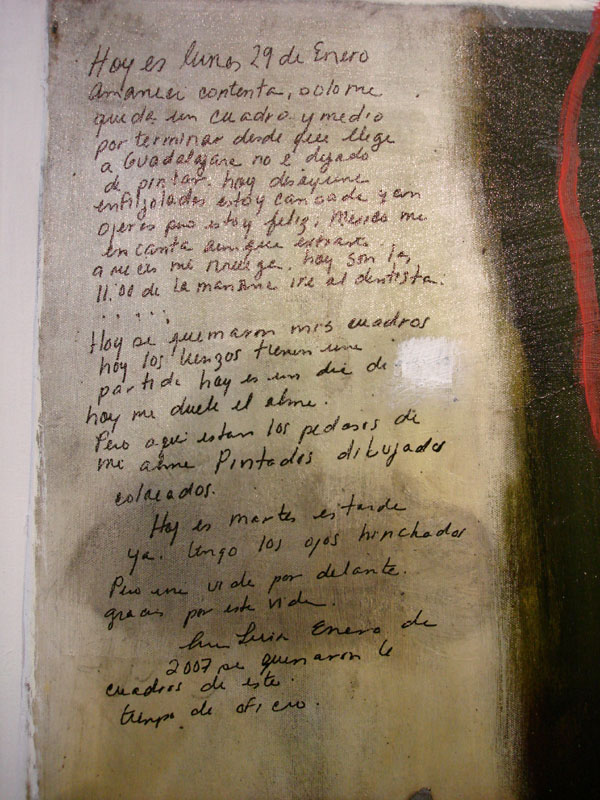 Hoy es lunes 29 de Enero
amaneci contenta, solo me
queda un cuadro y medio
por terminar desde que llege
a Guadalajara no e dejado
de pintar. hoy desayune
enfrijoladas estoy cansada y con
ojeras pero estoy feliz, Mexico me
encanta aunque extraño
a veces mi hoy son las
11:00 de la mañana ire al dentista.
. . . . .
Hoy se quemaron mis cuadros
hoy los lienzos tienen una
partida hoy es un dia de
hoy me duele el alma.
Pero aqui estan los pedasos de
mi alma Pintados dibujados
coloreados.
Hoy es martes es tarde
ya. tengo los ojos hinchados
Pero una vida por delante.
gracias por esta vida.
Enero de
2007 se quemaron
cuadros de este
tiempo de oficio.